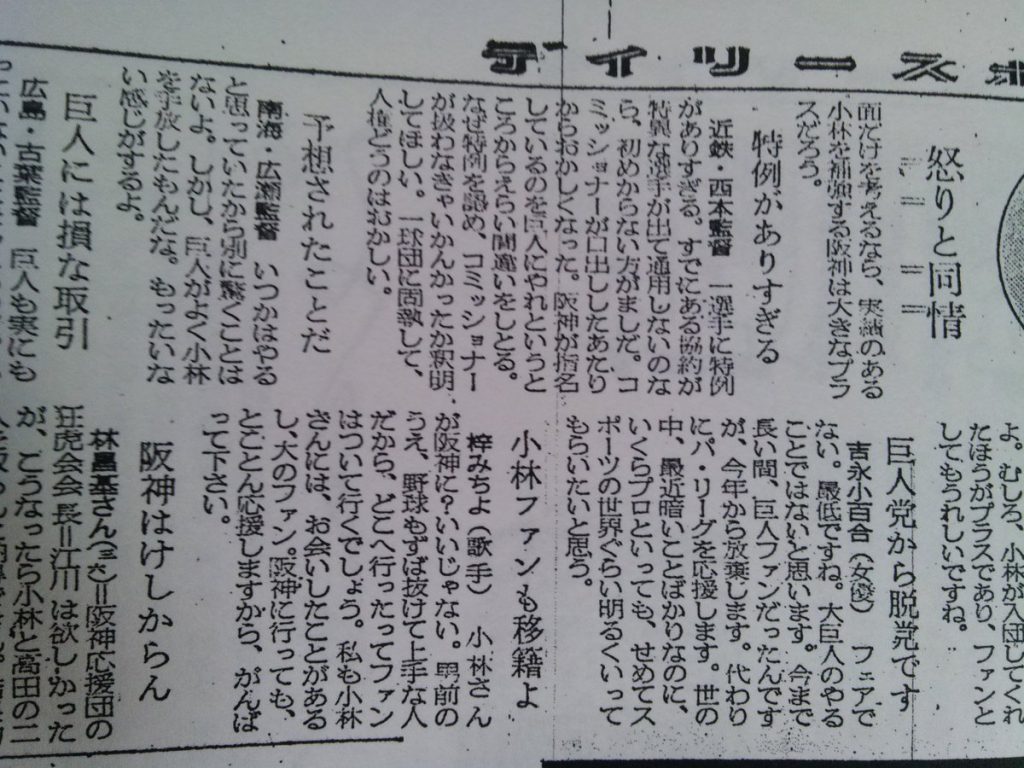 デイリースポ
怒りと同情
面だけを考えるなら、実績のある
小林を補強する阪神は大きなプラ
スだろう。
特例がありすぎる
近鉄・西本監督　一選手に特例
がありすぎる。すでにある協約が
特異な選手が出て通用しないのな
ら、初めからない方がましだ。コ
ミッショナーが口出ししたあたり
からおかしくなった。阪神が指名
しているのを巨人にやれというと
ころからえらい間違いをしとる。
なぜ特例を認め、コミッショナー
が扱わなきゃいかんかったか釈明
してほしい。一球団に固執して、
人権どうのはおかしい。
予想されたことだ
南海・広瀬監督　いつかはやる
と思っていたから別に驚くことは
ないよ。しかし、巨人がよく小林
を手放したもんだな。もったいな
い感じがするよ。
巨人には損な取引
広島・古葉監督　巨人も実にも
よ。むしろ、小林が入団してくれ
たほうがプラスであり、ファンと
してもうれしいですね。
巨人党から脱党です
吉永小百合（女優）　フェアで
ない。最低ですね。大巨人のやる
ことではないと思います。今まで
長い間、巨人ファンだったんです
が、今年から放棄します。代わり
にパ・リーグを応援します。世の
中、最近暗いことばかりなのに、
いくらプロといっても、せめてス
ポーツの世界ぐらい明るくいって
もらいたいと思う。
小林ファンも移籍よ
梓みちよ（歌手）　小林さん
が阪神に？いいじゃない。男前の
うえ、野球もずば抜けて上手な人
だから、どこへ行ったってファン
はついて行くでしょう。私も小林
さんには、お会いしたことがある
し、大のファン。阪神に行っても、
とことん応援しますから、がんば
って下さい。
阪神はけしからん
林昌基さん＝阪神応援団の
狂虎会会長＝江川は欲しかった
が、こうなったら小林と高田の二